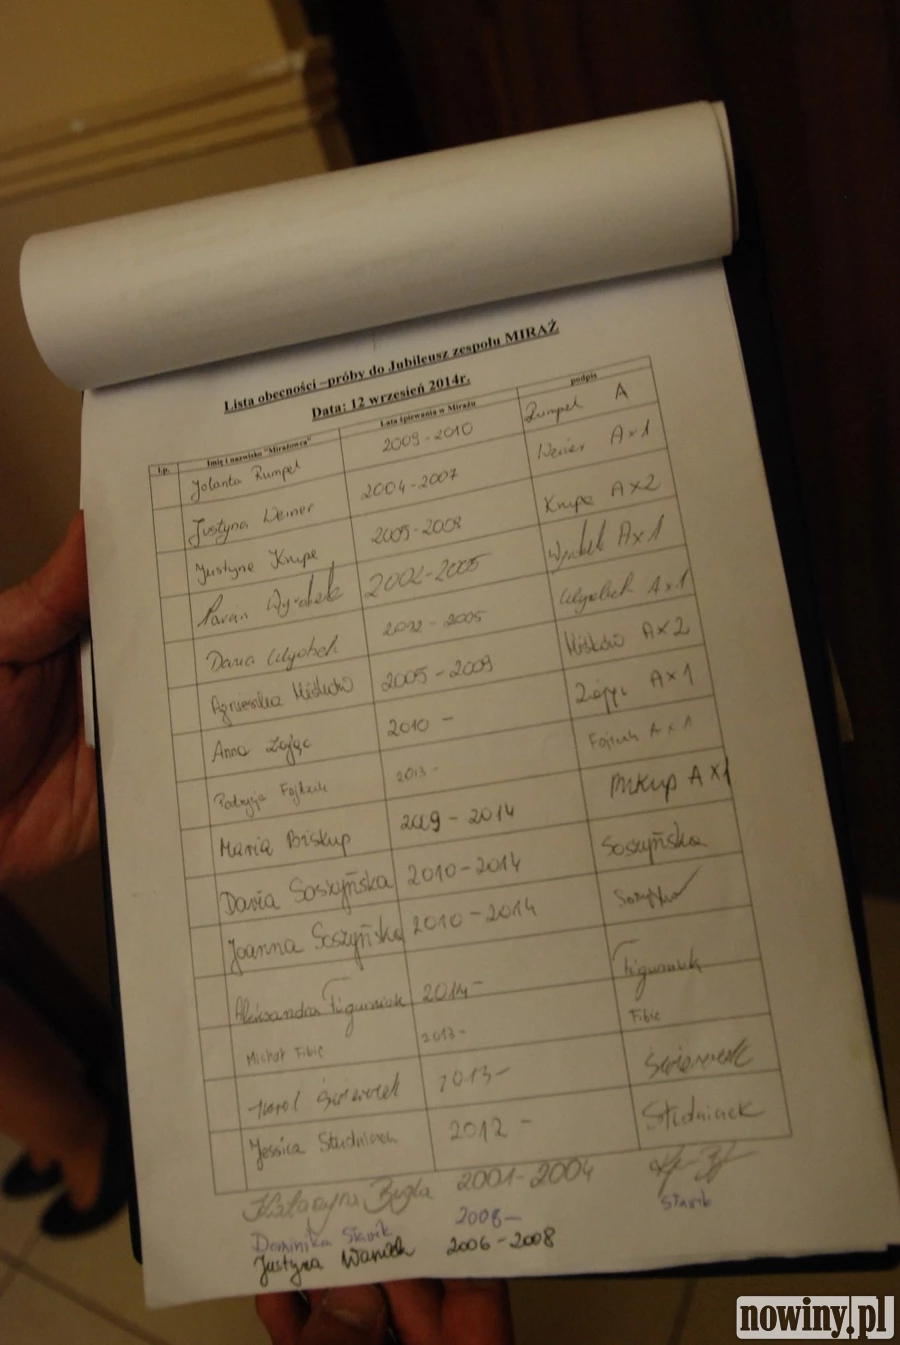 Lista obecności –próby do Jubileusz zespołu MIRAŻ
Data: 12 wrzesień 2014r.
Lp. Imię i nazwisko "Mirażowca" Lata śpiewania w Mirażu podpis
Jolanta Rumpel 2009-2010 Rumpel A
Justyna Weiner 2004-2007 Weiner A×1
Justyna Krupa 2005-2008 Krupa A×2
Wyrobek 2002-2005 Wyrobek A×1
Daria Wyrobek 2002 - 2005 Wyrobek A×1
Agnieszka 2005 - 2009 A×2
Anna Zając 2010 - Zając A×1
Patrycja Fojtuch 2013- Fojtuch A×1
Maria Biskup 2009 - 2014 Biskup A×1
Daria Soszyńska 2010-2014 Soszyńska
Joanna Soszyńska 2010-2014
Aleksandra Figurniak 2014- Figurniak
Michał Fibic 2013- Fibic
Karol 2013-
Jessica Studniarek 2012 - Studniarek
Katarzyna 2001-2004
Dominika Slavik 2008- Slavik
Justyna 2006-2008
nowiny.pl